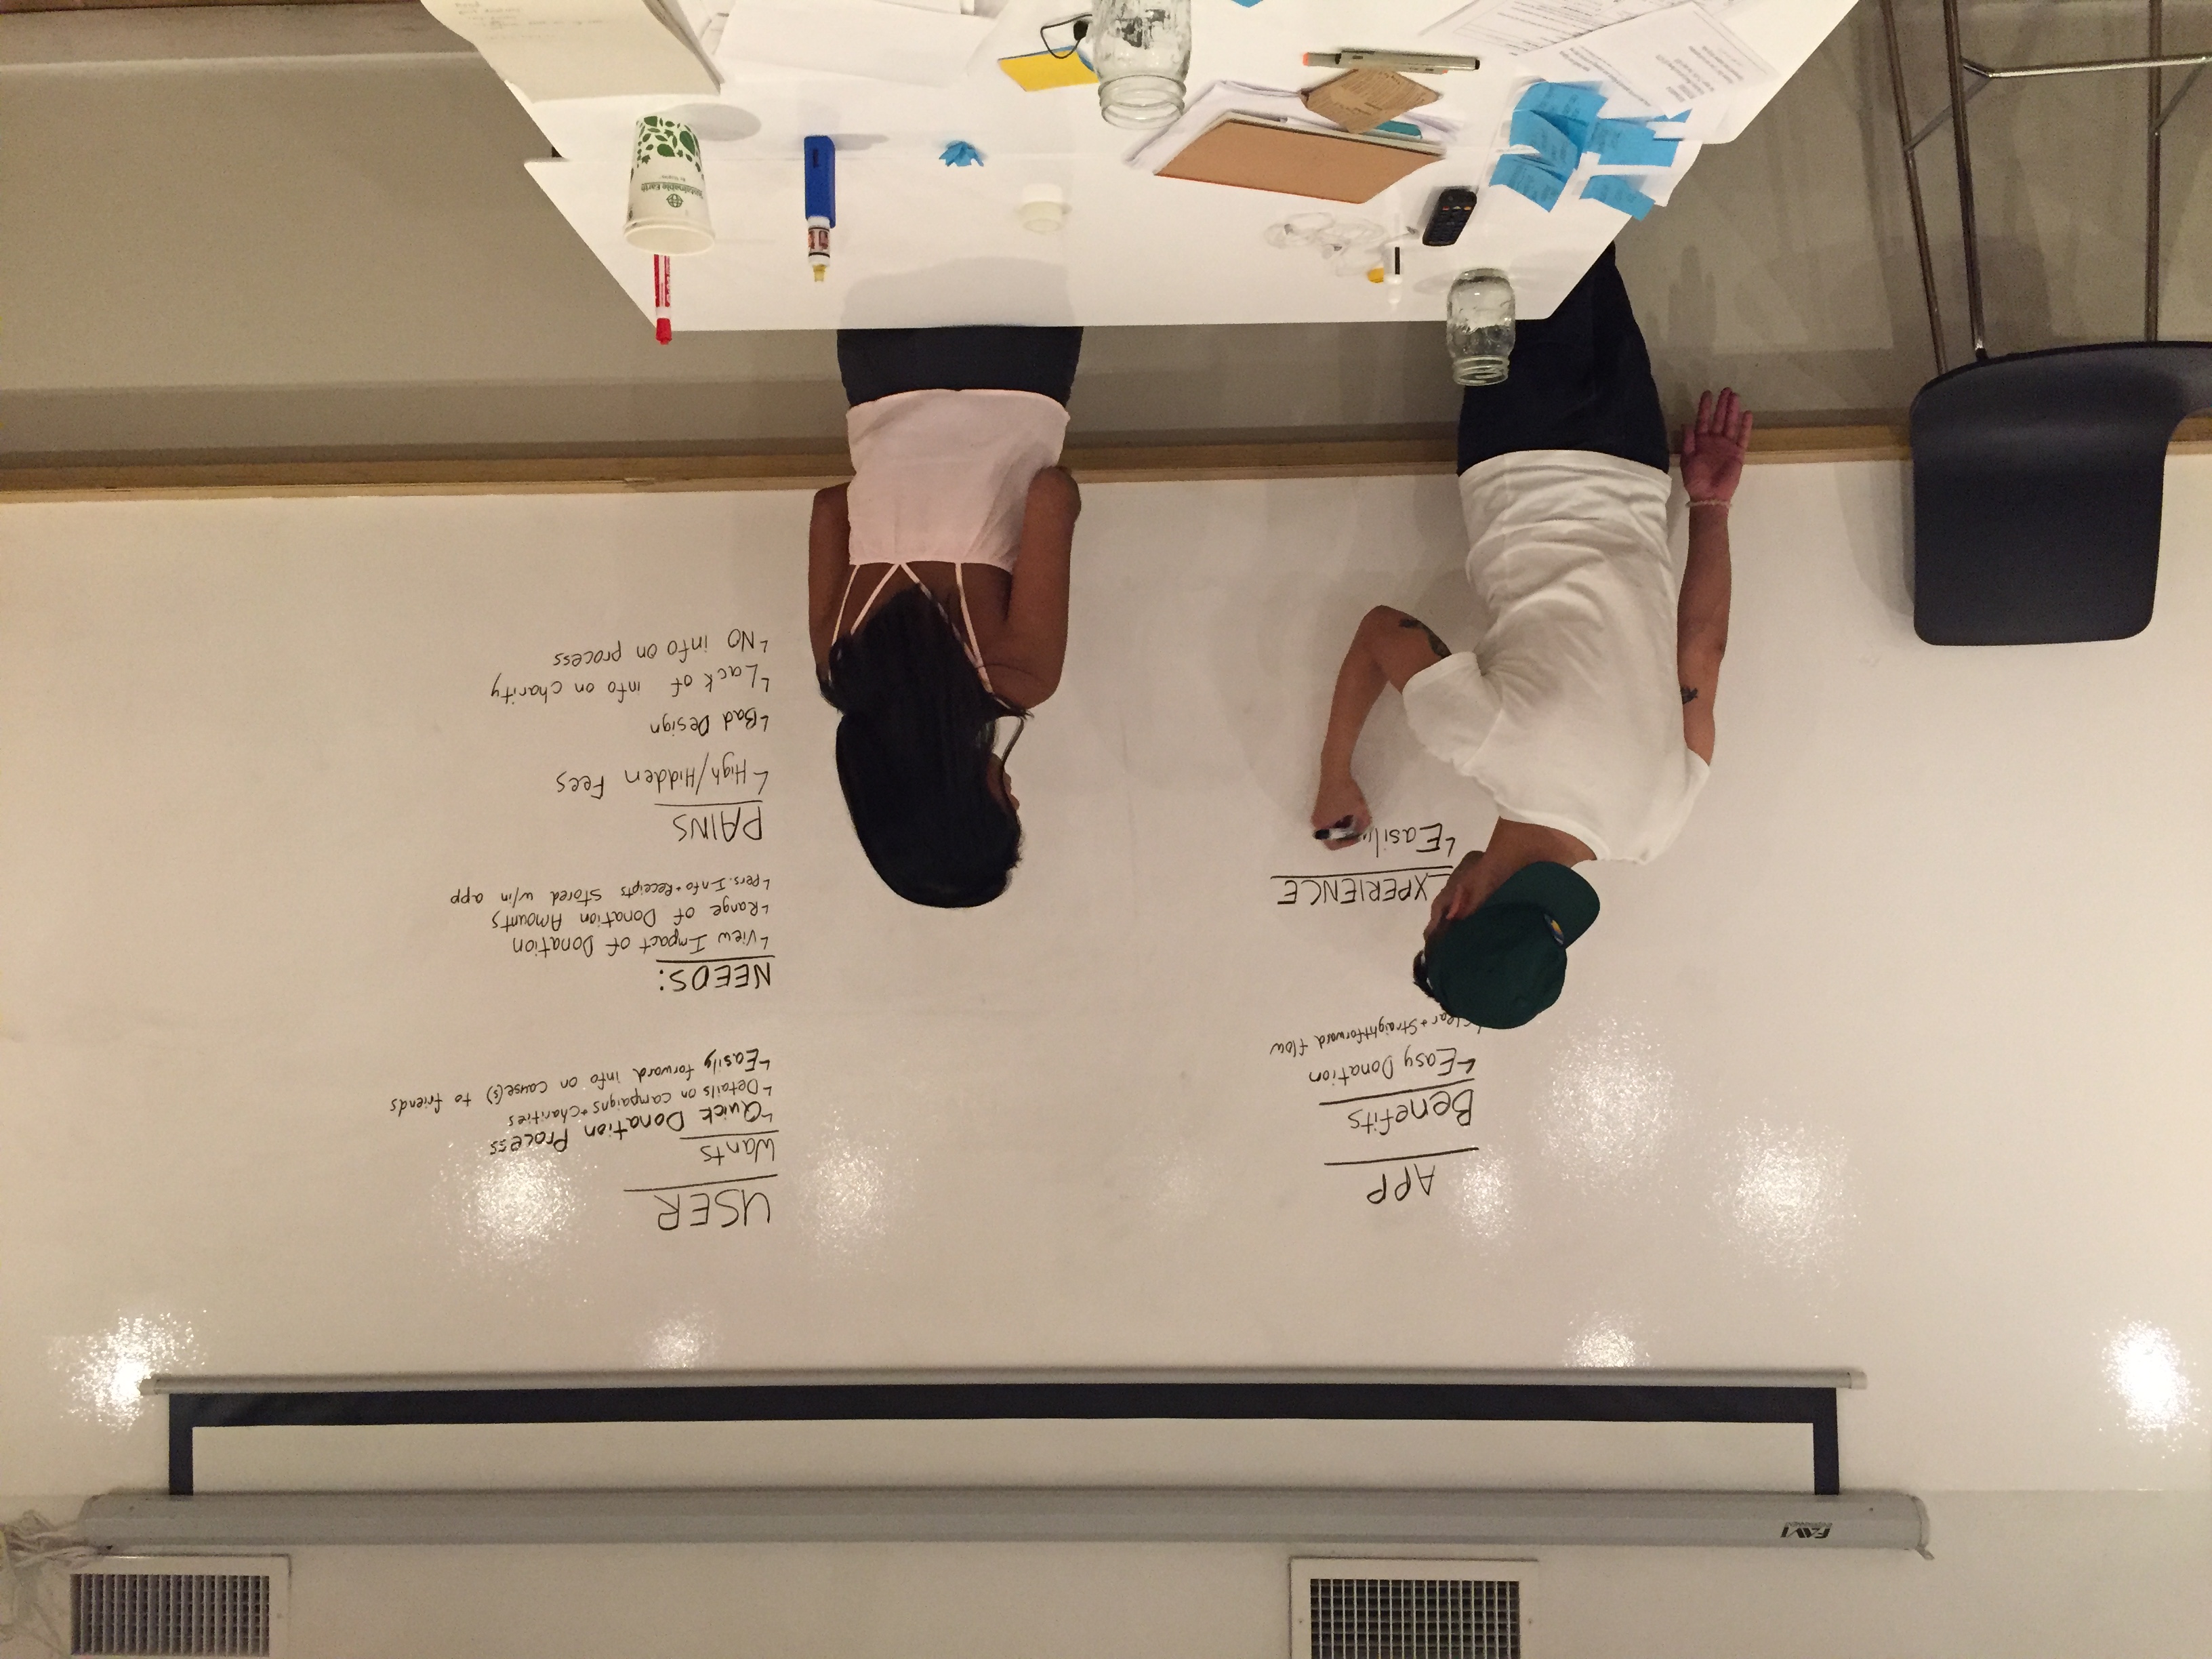 FAVI
APP
Benefits
Easy Donation
Clear + Straightforward flow
EXPERIENCE
Easily
USER
Wants
Quick Donation Process
Details on campaigns + Charities
Easily forward info on cause(s) to friends
NEEDS:
View Impact of Donation
Range of Donation Amounts
Pers. Info + Receipts stored w/in app
PAINS
High/Hidden Fees
Bad Design
Lack of info on charity
NO info on process
Sustainable Earth